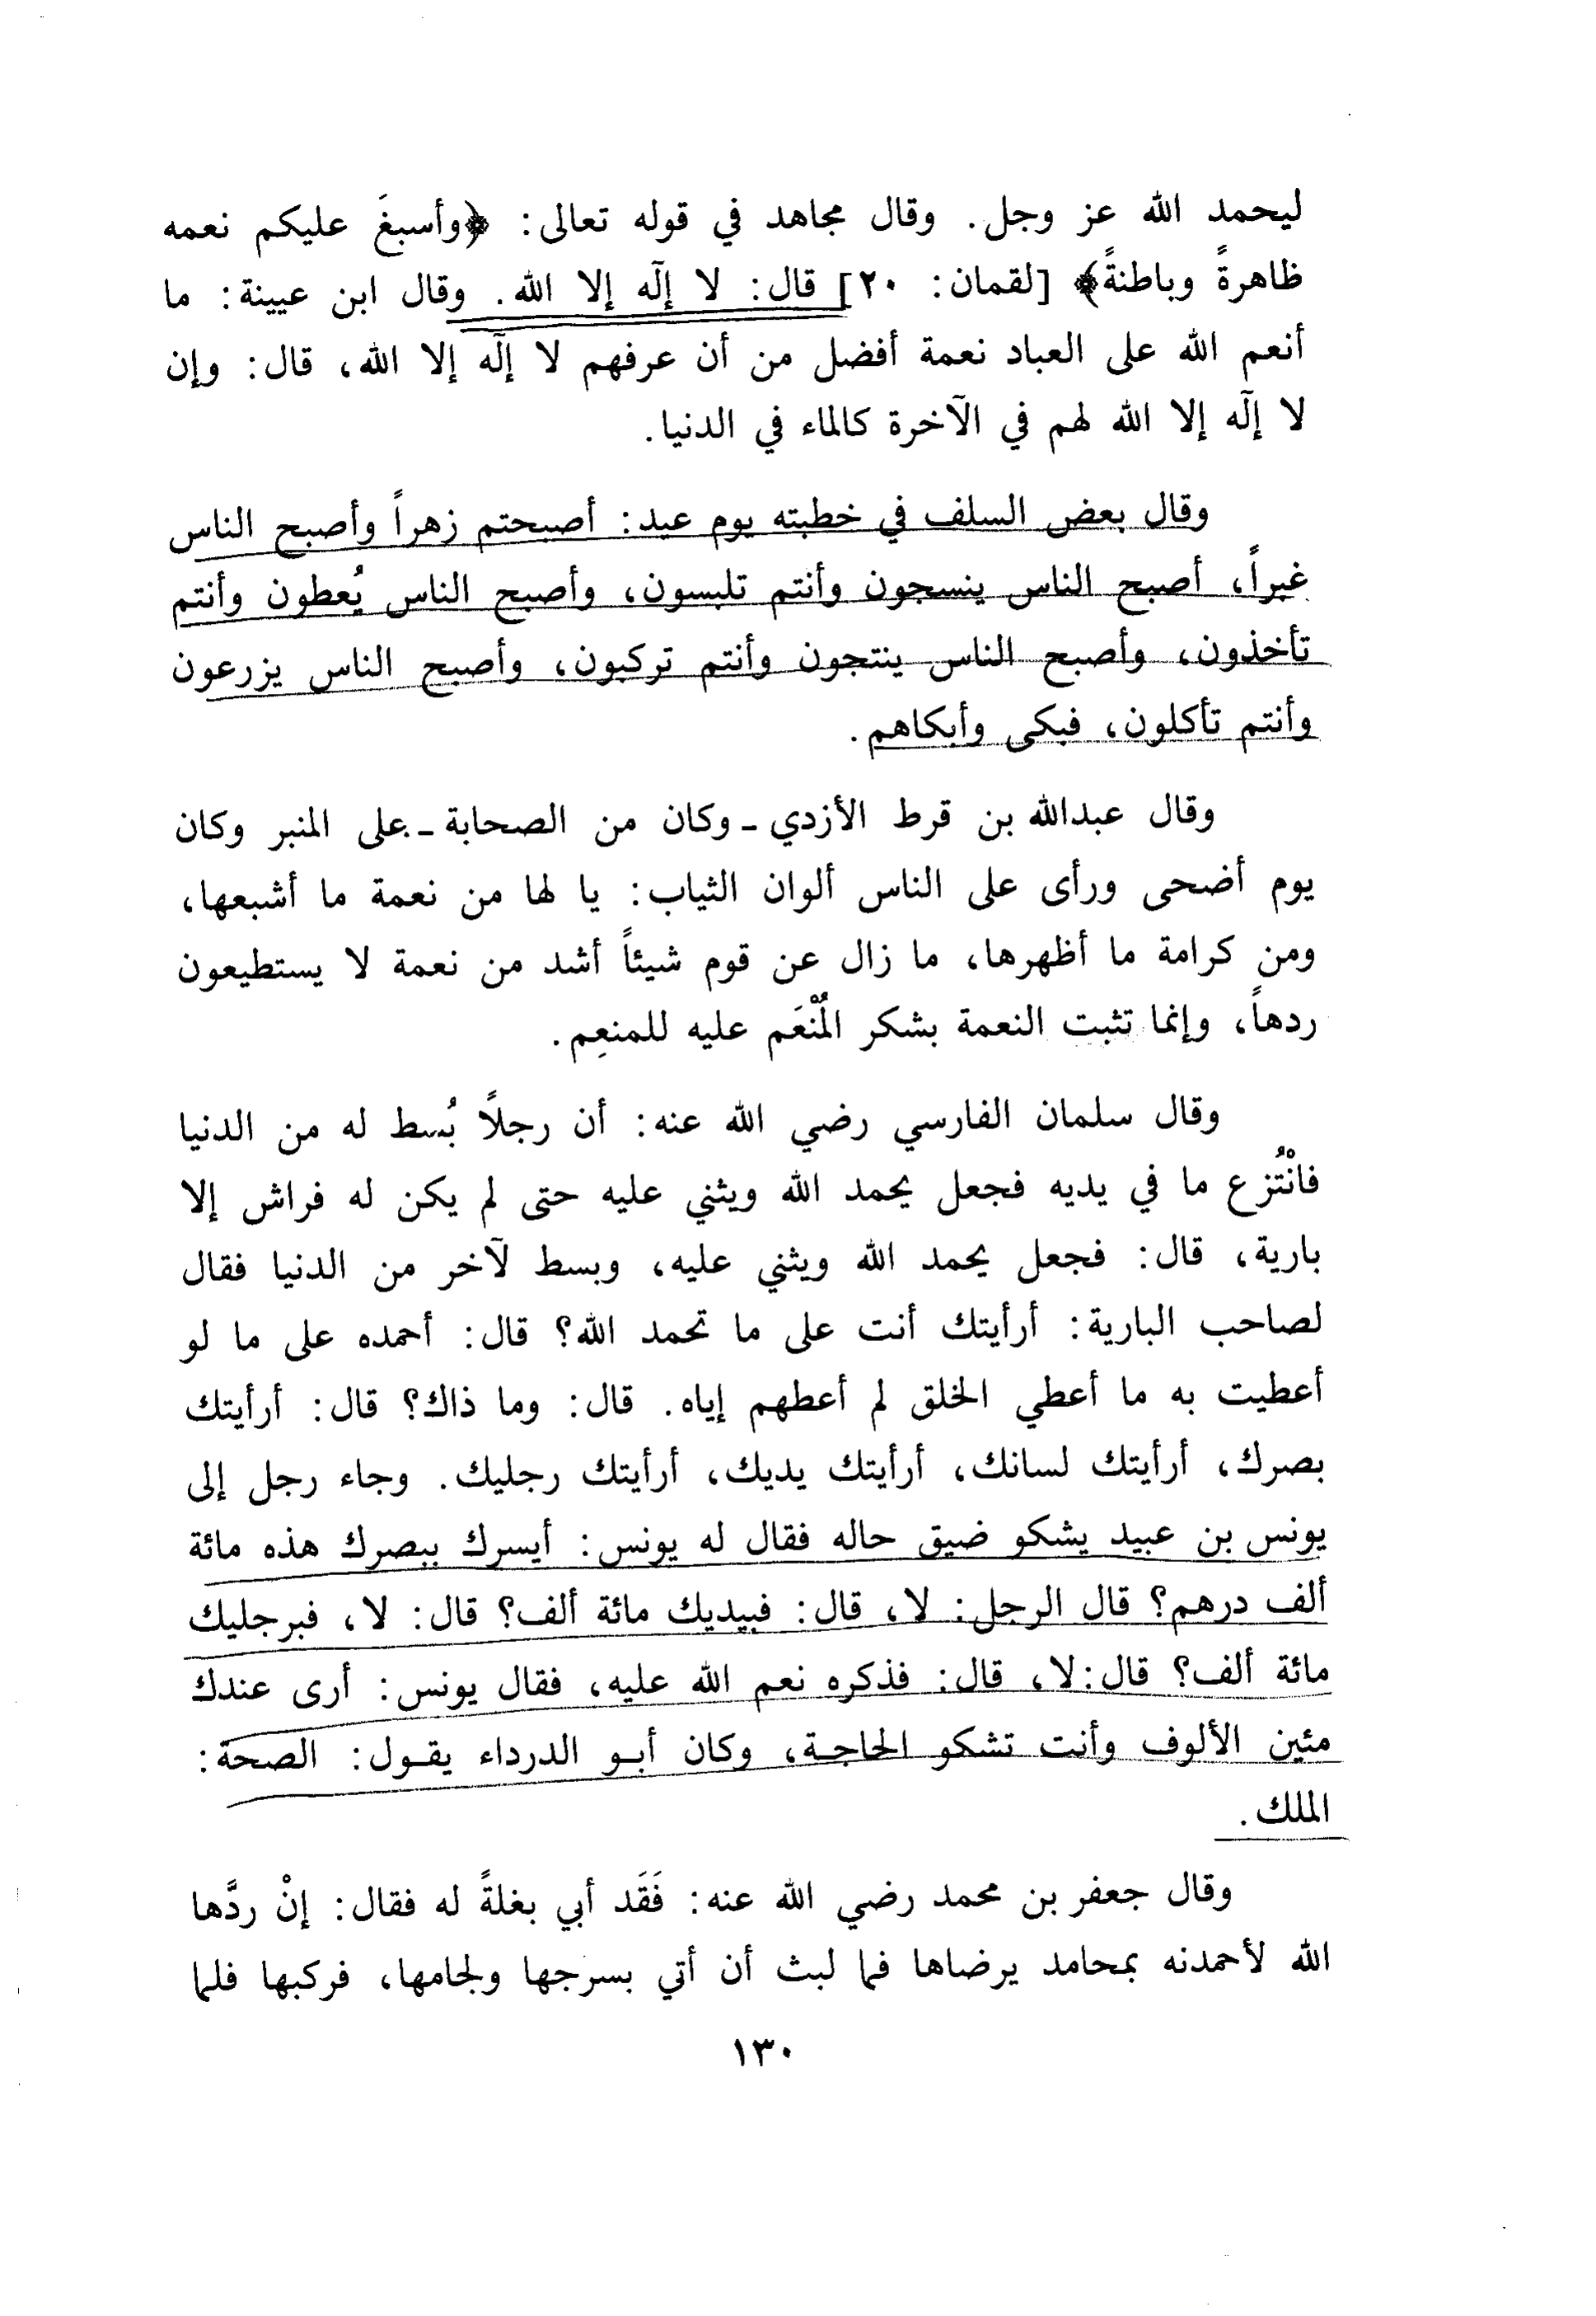 ليحمد الله عز وجل. وقال مجاهد في قوله تعالى: ﴿وأسبغَ عليكم نعمه
ظاهرةً وباطنةً﴾ [لقمان: ٢٠] قال: لا إلٓه إلا الله. وقال ابن عيينة: ما
أنعم الله على العباد نعمة أفضل من أن عرفهم لا إلٓه إلا الله، قال: وإن
لا إلٓه إلا الله لهم في الآخرة كالماء في الدنيا.
وقال بعض السلف في خطبته يوم عيد: أصبحتم زهراً وأصبح الناس
غبراً، أصبح الناس ينسجون وأنتم تلبسون، وأصبح الناس يُعطون وأنتم
تأخذون، وأصبح الناس ينتجون وأنتم تركبون، وأصبح الناس يزرعون
وأنتم تأكلون، فبكى وأبكاهم.
وقال عبدالله بن قرط الأزدي ـ وكان من الصحابة ـ على المنبر وكان
يوم أضحى ورأى على الناس ألوان الثياب: يا لها من نعمة ما أشبعها،
ومن كرامة ما أظهرها، ما زال عن قوم شيئاً أشد من نعمة لا يستطيعون
ردهاً، وإنما تثبت النعمة بشكر المُنْعَم عليه للمنعِم.
وقال سلمان الفارسي رضي الله عنه: أن رجلاً بُسط له من الدنيا
فانْتُزع ما في يديه فجعل يحمد الله ويثني عليه حتى لم يكن له فراش إلا
بارية، قال: فجعل يحمد الله ويثني عليه، وبسط لآخر من الدنيا فقال
لصاحب البارية: أرأيتك أنت على ما تحمد الله؟ قال: أحمده على ما لو
أعطيت به ما أعطي الخلق لم أعطهم إياه. قال: وما ذاك؟ قال: أرأيتك
بصرك، أرأيتك لسانك، أرأيتك يديك، أرأيتك رجليك. وجاء رجل إلى
يونس بن عبيد يشكو ضيق حاله فقال له يونس: أيسرك ببصرك هذه مائة
ألف درهم؟ قال الرجل: لا، قال: فبيديك مائة ألف؟ قال: لا، فبرجليك
مائة ألف؟ قال: لا، قال: فذكره نعم الله عليه، فقال يونس: أرى عندك
مئين الألوف وأنت تشكو الحاجـة، وكان أبـو الدرداء يقـول: الصحة:
الملك.
وقال جعفر بن محمد رضي الله عنه: فَقَد أبي بغلةً له فقال: إنْ ردَّها
الله لأحمدنه بمحامد يرضاها فما لبث أن أتي بسرجها ولجامها، فركبها فلما
١٣٠